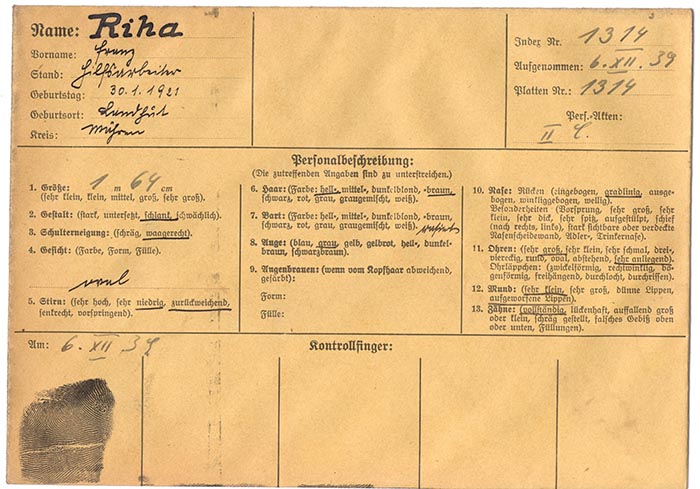 Name: Riha
Vorname: Franz
Stand: Hilfsarbeiter
Geburtstag: 30.1.1921
Geburtsort: Landshut
Kreis: Mähren
Index Nr. 1314
Aufgenommen: 6.XII.39
Platten Nr.: 1314
Pers.-Akten:
II
Personalbeschreibung:
(Die zutreffenden Angaben sind zu unterstreichen.)
1. Größe: 1 m 64 cm
(sehr klein, klein, mittel, groß, sehr groß).
2. Gestalt: (stark, untersetzt, schlank, schwächlich).
3. Schulterneigung: (schräg, waagerecht).
4. Gesicht: (Farbe, Form, Fülle).
oval
5. Stirn: (sehr hoch, sehr niedrig, zurückweichend, senkrecht, vorspringend).
6. Haar: (Farbe: hell-, mittel-, dunkelblond, -braun,
schwarz, rot, grau, graugemischt, weiß).
7. Bart: (Farbe: hell-, mittel-, dunkelblond, -braun,
schwarz, rot, grau, graugemischt, weiß). rasiert
8. Auge: (blau, grau, gelb, gelbrot, hell-, dunkel-
braun, schwarzbraun).
9. Augenbrauen: (wenn vom Kopfhaar abweichend,
gefärbt):
Form:
Fülle:
10. Nase: Rücken (eingebogen, gradlinig, ausge-
bogen, winkliggebogen, wellig).
Besonderheiten (Vorsprung, sehr groß, sehr
klein, sehr dick, sehr spitz, aufgestülpt, schief
(nach rechts, links), stark sichtbare oder verdeckte
Nasenscheidewand, Adler-, Trinkernase).
11. Ohren: (sehr groß, sehr klein, sehr schmal, drei-,
viereckig, rund, oval, abstehend, sehr anliegend).
Ohrläppchen: (zwickelförmig, rechtwinklig, bo-
genförmig, freihängend, durchlocht, durchrissen).
12. Mund: (sehr klein, sehr groß, dünne Lippen,
aufgeworfene Lippen).
13. Zähne: (vollständig, lückenhaft, auffallend groß
oder klein, schräg gestellt, falsches Gebiß oben
oder unten, Füllungen).
Am: 6.XII.39
Kontrollfinger: